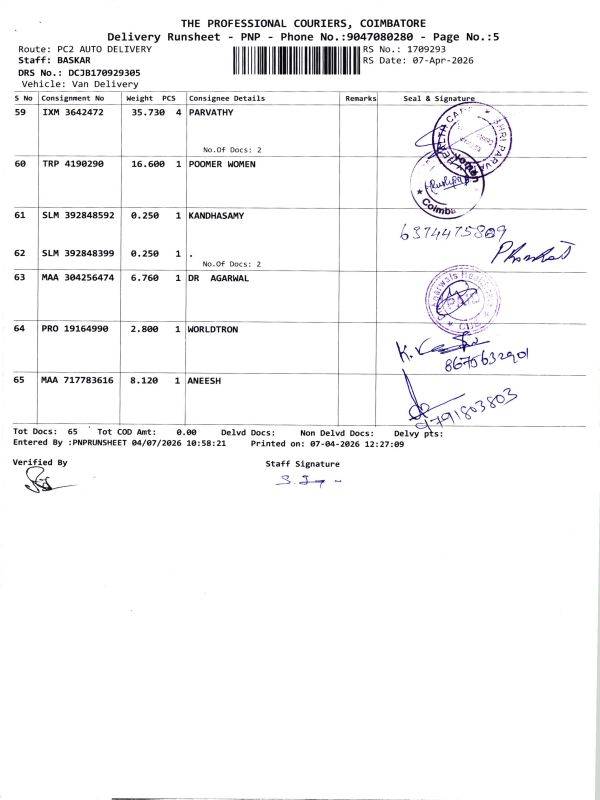 THE PROFESSIONAL COURIERS, COIMBATORE
Delivery Runsheet - PNP - Phone No.:9047080280 - Page No.:5
Route: PC2 AUTO DELIVERY RS No.: 1709293
Staff: BASKAR RS Date: 07-Apr-2026
DRS No.: DCJB170929305
Vehicle: Van Delivery
S No Consignment No Weight PCS Consignee Details Remarks Seal & Signature
59 IXM 3642472 35.730 4 PARVATHY
No.Of Docs: 2
60 TRP 4190290 16.600 1 POOMER WOMEN
61 SLM 392848592 0.250 1 KANDHASAMY
6374475809
62 SLM 392848399 0.250 1 .
No.Of Docs: 2
63 MAA 304256474 6.760 1 DR AGARWAL
64 PRO 19164990 2.800 1 WORLDTRON
8675632901
65 MAA 717783616 8.120 1 ANEESH
9791803803
Tot Docs: 65 Tot COD Amt: 0.00 Delvd Docs: Non Delvd Docs: Delvy pts:
Entered By :PNPRUNSHEET 04/07/2026 10:58:21 Printed on: 07-04-2026 12:27:09
Verified By
Staff Signature